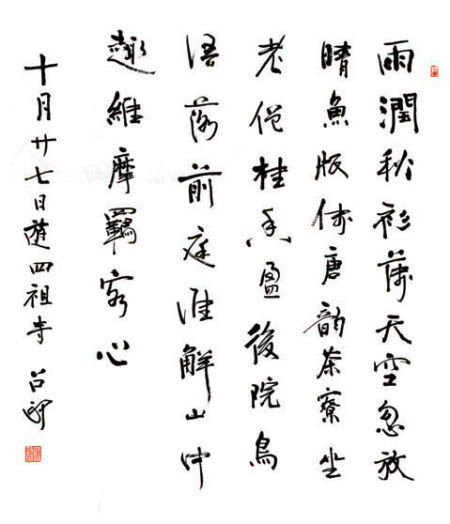 雨潤秋衫薄天空忽放
晴魚版傳唐韵茶寮坐
老僧桂香盈後院鳥
語落前庭誰解山中
趣維摩羈客心
十月廿七日遊四祖寺